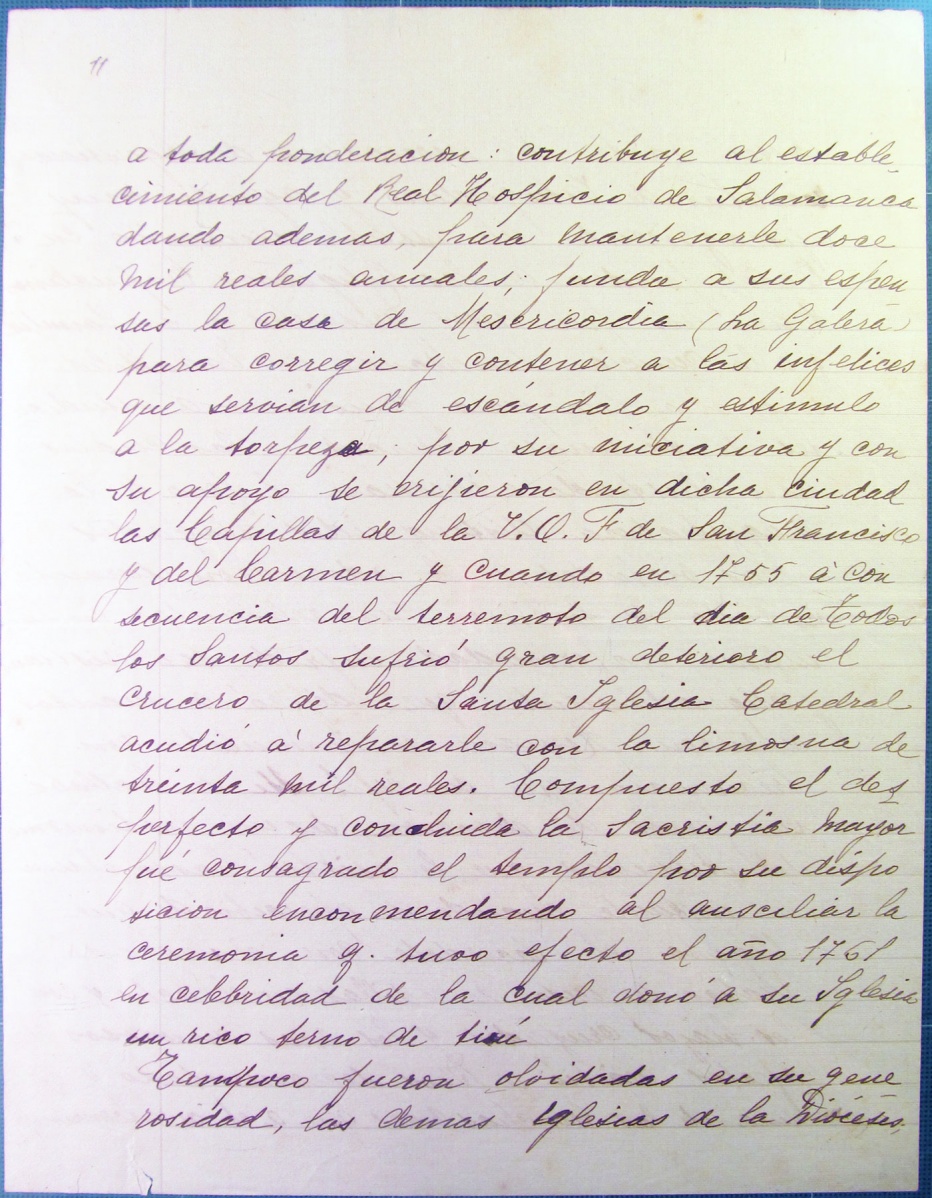 11
a toda ponderacion: contribuye al estable_
cimiento del Real Hospicio de Salamanca
dando ademas, para mantenerle doce
mil reales anuales; funda a sus espen
sas la casa de Misericordia (La Galera)
para corregir y contener a las infelices
que servian de escándalo y estimulo
a la torpeza; por su iniciativa y con
su apoyo se erijieron en dicha ciudad
las Capillas de la V. O. F de San Francisco
y del Carmen y cuando en 1755 á con
secuencia del terremoto del dia de Todos
los Santos sufrió gran deterioro el
crucero de la Santa Iglesia Catedral
acudió á repararle con la limosna de
treinta mil reales. Compuesto el des
perfecto y concluida la Sacristia mayor
fué consagrado el templo por su dispo
sicion enconmendando al ausciliar la
ceremonia q. tuvo efecto el año 1761
en celebridad de la cual donó a su Iglesia
un rico terno de tisú
Tampoco fueron olvidadas en su gene
rosidad, las demas iglesias de la Diócesis,